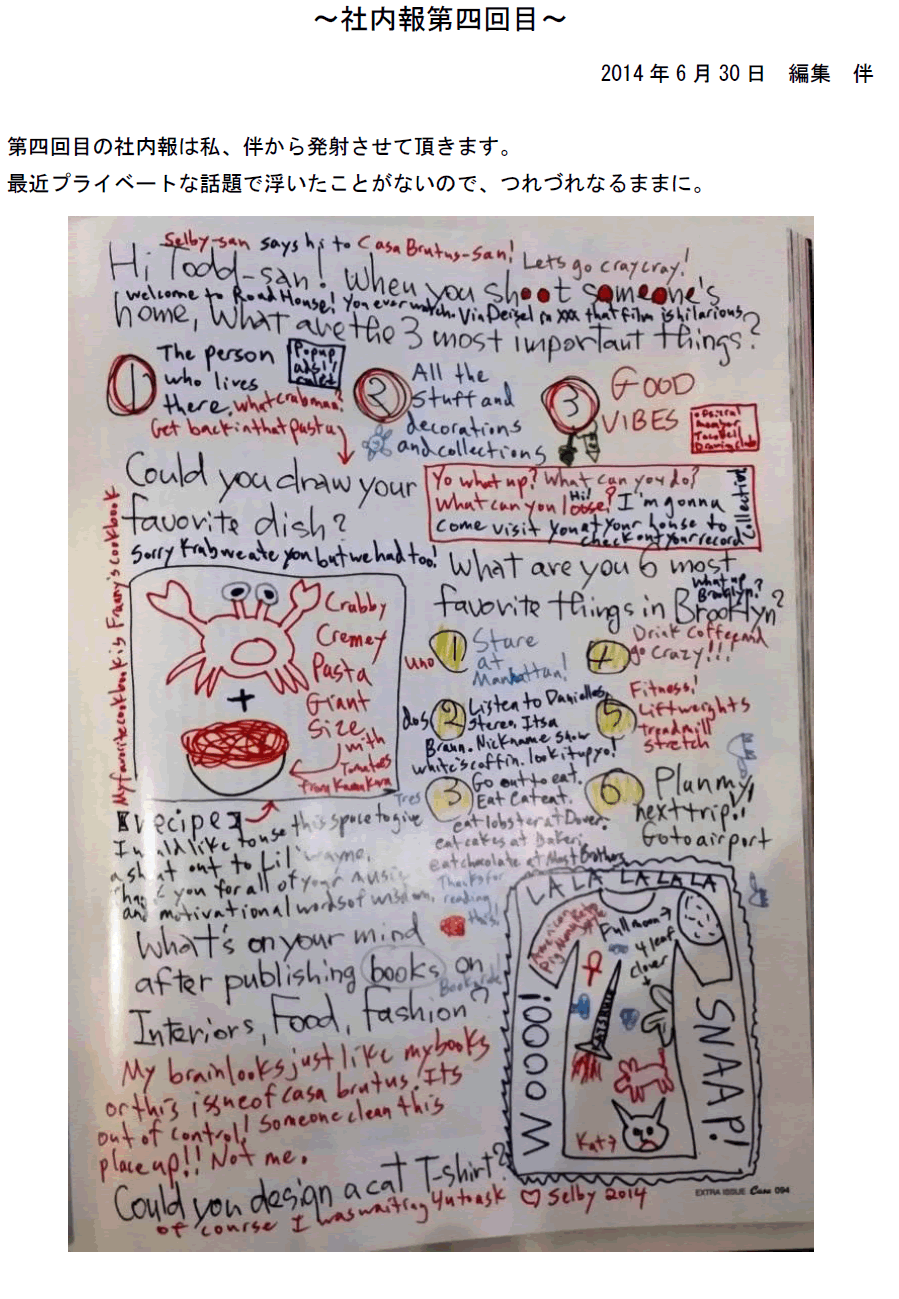 ～社内報第四回目～
2014年6月30日　編集　伴
第四回目の社内報は私、伴から発射させて頂きます。
最近プライベートな話題で浮いたことがないので、つれづれなるままに。
Selby-san says hi to Casa Brutus-San! Lets go craycray!
Hi Todd-san! When you shoot someone's
Welcome to Road House! You ever watch Vin Deisel in xxx that film is hilarious
home, What are the 3 most important things?
1
The person
who lives
there. what crabman?
Get back in that pasta
Popup
2
All the
Stuff and
decorations
and collections
3
GOOD
VIBES
official
member
Taco Bell
Drawing club
Could you draw your
favorite dish?
Sorry Krab we ate you but we had too!
Yo what up? What can you do?
What can you loose? Hi! I'm gonna
come visit you at your house to
check out your record
collection
My favorite cookbook is Franny's cookbook
Crabby
Cremey
Pasta
Giant
Size
with
Tomatoes
from Kamakura
+
What are you 6 most
favorite things in Brooklyn?
what up
Brooklyn?
uno 1
Stare
at
Manhattan!
dos 2
Listen to Danielles
Stereo. Itsa
Braun. Nickname snow
white's coffin. look it up yo!
Tres 3
Go out to eat.
Eat Cateat.
eat lobster at Dover.
eat cakes at Bakeri.
eat chocolate at Mast Brothers
Thanks for
reading
this!
4
Drink Coffee and
go crazy!!!
5
Fitness!
Lift weights
treadmill
stretch
6
Plan my
next trip!!
Go to airport
【recipe】
I would like to use this space to give
a shout out to Lil' Wayne.
thank you for all of your music
and motivational words of wisdom.
What's on your mind
after publishing books on
Interiors, Food, Fashion?
My brain looks just like my books
or this issue of casa brutus. Its
out of control! Someone clean this
place up!! Not me.
Could you design a cat T-shirt?
of course I was waiting 4 u to ask ♡ Selby 2014
LA LA LA LA LA
American
Full moon
4 leaf
clover
WOOOO!
SNAAP!
Kat
EXTRA ISSUE Casa 094